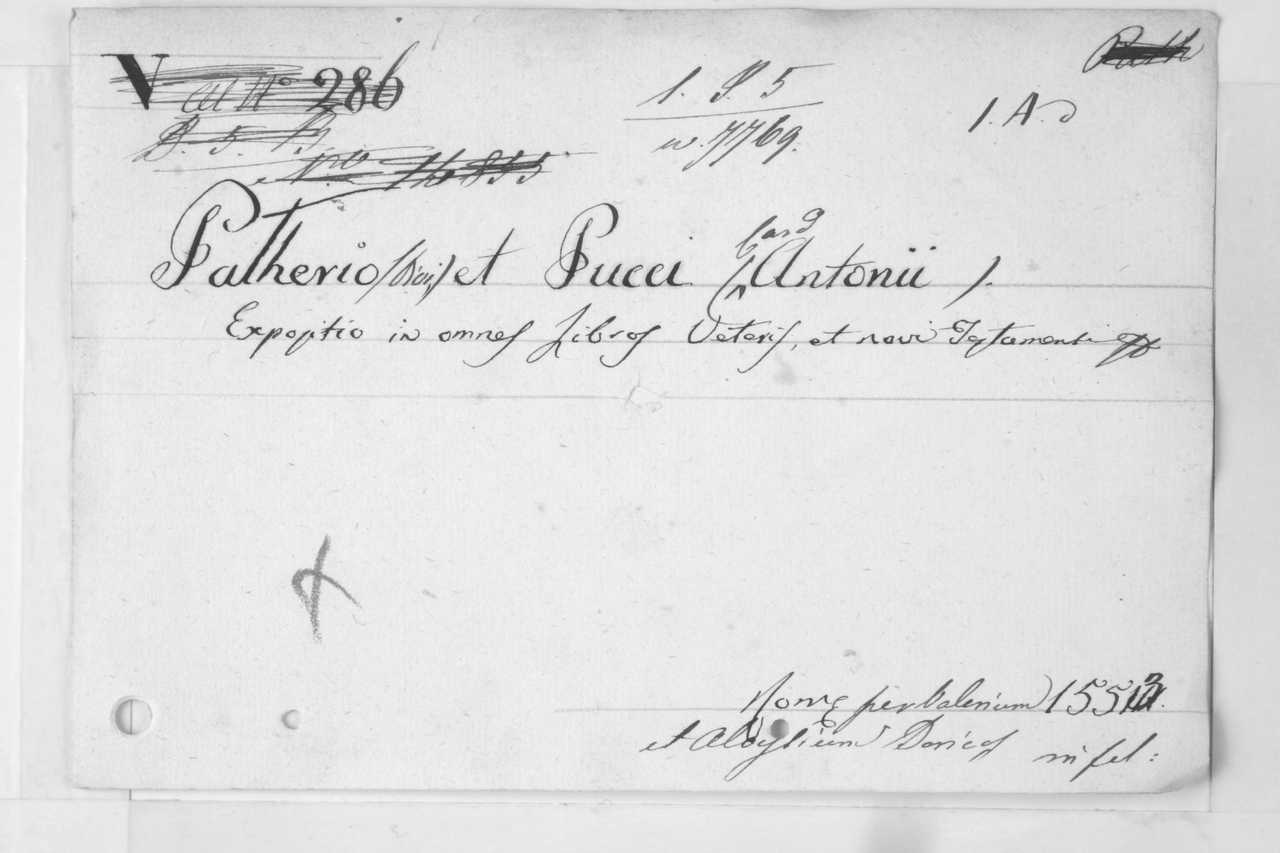 V 286
1. S. 5
w. 7769.
1. A. d
Patherio et Pucci (Card Antonii).
Expositio in omnes Libros Veteris, et novi Testamenti
Romæ per Valerium 1553.
et Aloysium Doricos in fol: